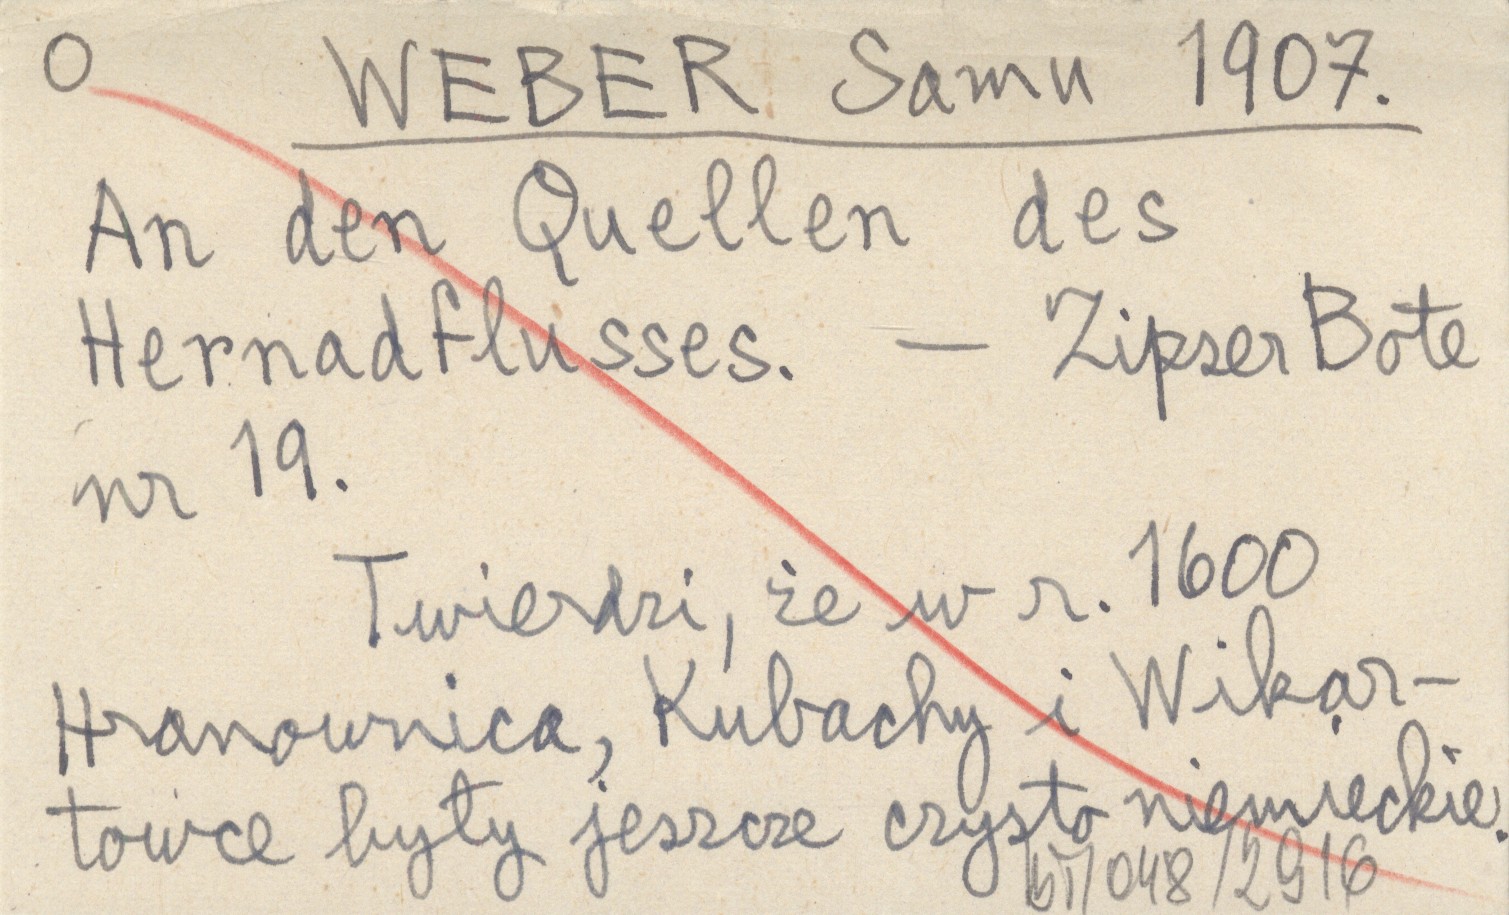 O WEBER Samu 1907.
An den Quellen des
Hernadflusses. — Zipser Bote
nr 19.
Twierdzi, że w r. 1600
Hranownica, Kubachy i Wikar-
towce były jeszcze czysto niemieckie.
bt/048/2916